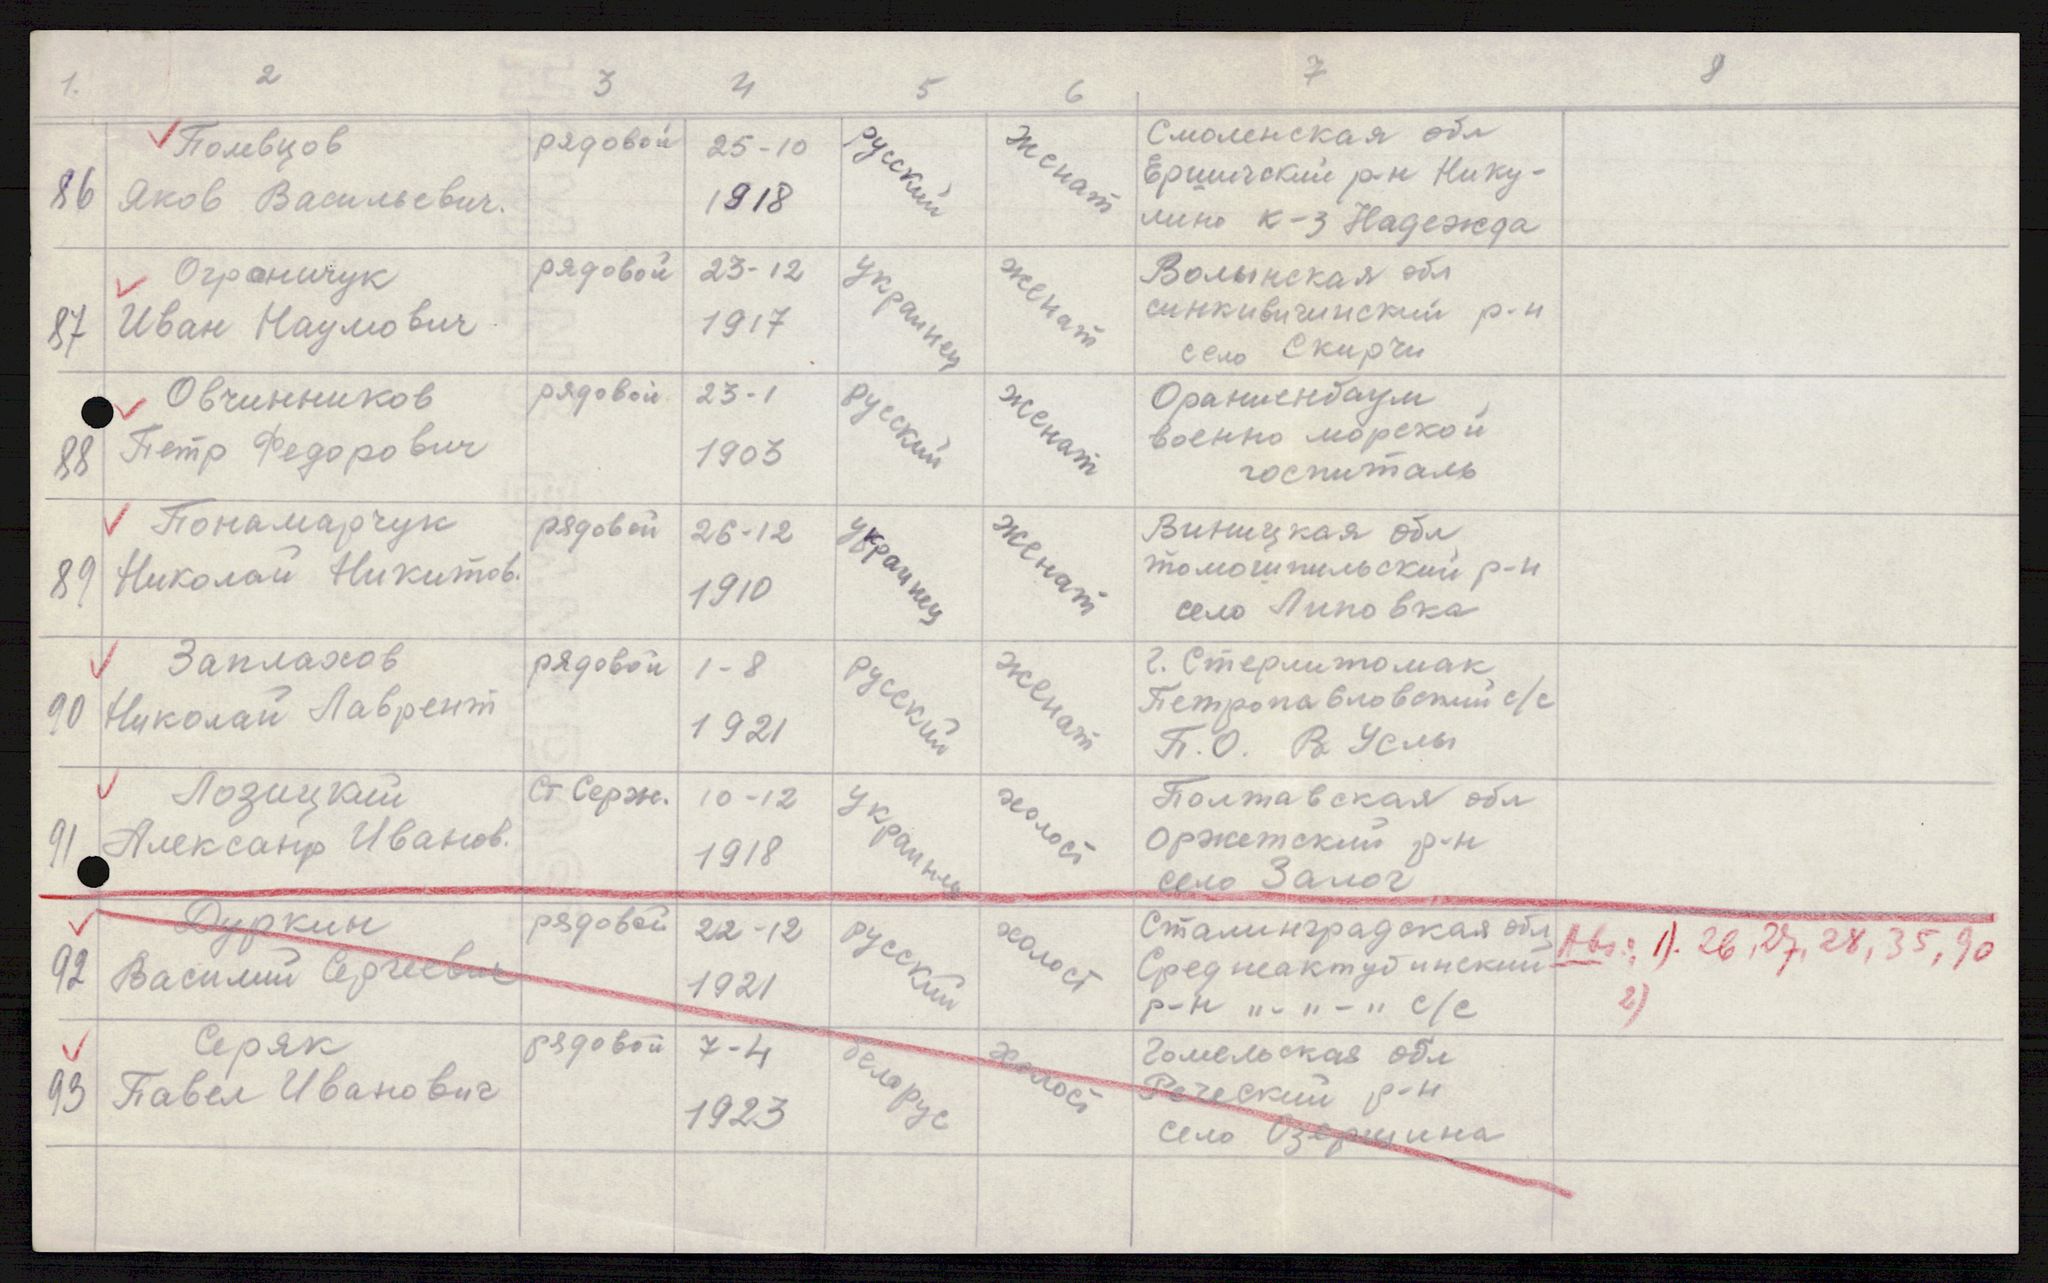 1. 2 3 4 5 6 7 8
86 Полевцов Яков Васильевич. рядовой 25-10 1918 русский женат Смоленская обл
Ершичский р-н Нику-
лино к-з Надежда
87 Ограничук Иван Наумович рядовой 23-12 1917 украинец женат Волынская обл
синкивичинский р-н
село Скирчи
88 Овчинников Петр Федорович рядовой 23-1 1903 русский женат Ораниенбаум
военно морской
госпиталь
89 Понамарчук Николай Никитов. рядовой 26-12 1910 украинец женат Виницкая обл
томошпильский р-н
село Липовка
90 Заплахов Николай Лаврент рядовой 1-8 1921 русский женат г. Стерлитомак
Петропавловский с/с
П.О. В Услы
91 Лозицкий Александр Иванов. Ст Серж. 10-12 1918 украинец холост Полтавская обл
Оржетский р-н
село Залог
92 Дуркин Василий Сергеевич рядовой 22-12 1921 русский холост Сталинградская обл
Среднеактубинский
р-н "-"-" с/с
1). 26, 27, 28, 35, 90
2)
93 Серяк Павел Иванович рядовой 7-4 1923 белорус холост Гомельская обл
Реческий р-н
село Озерщина